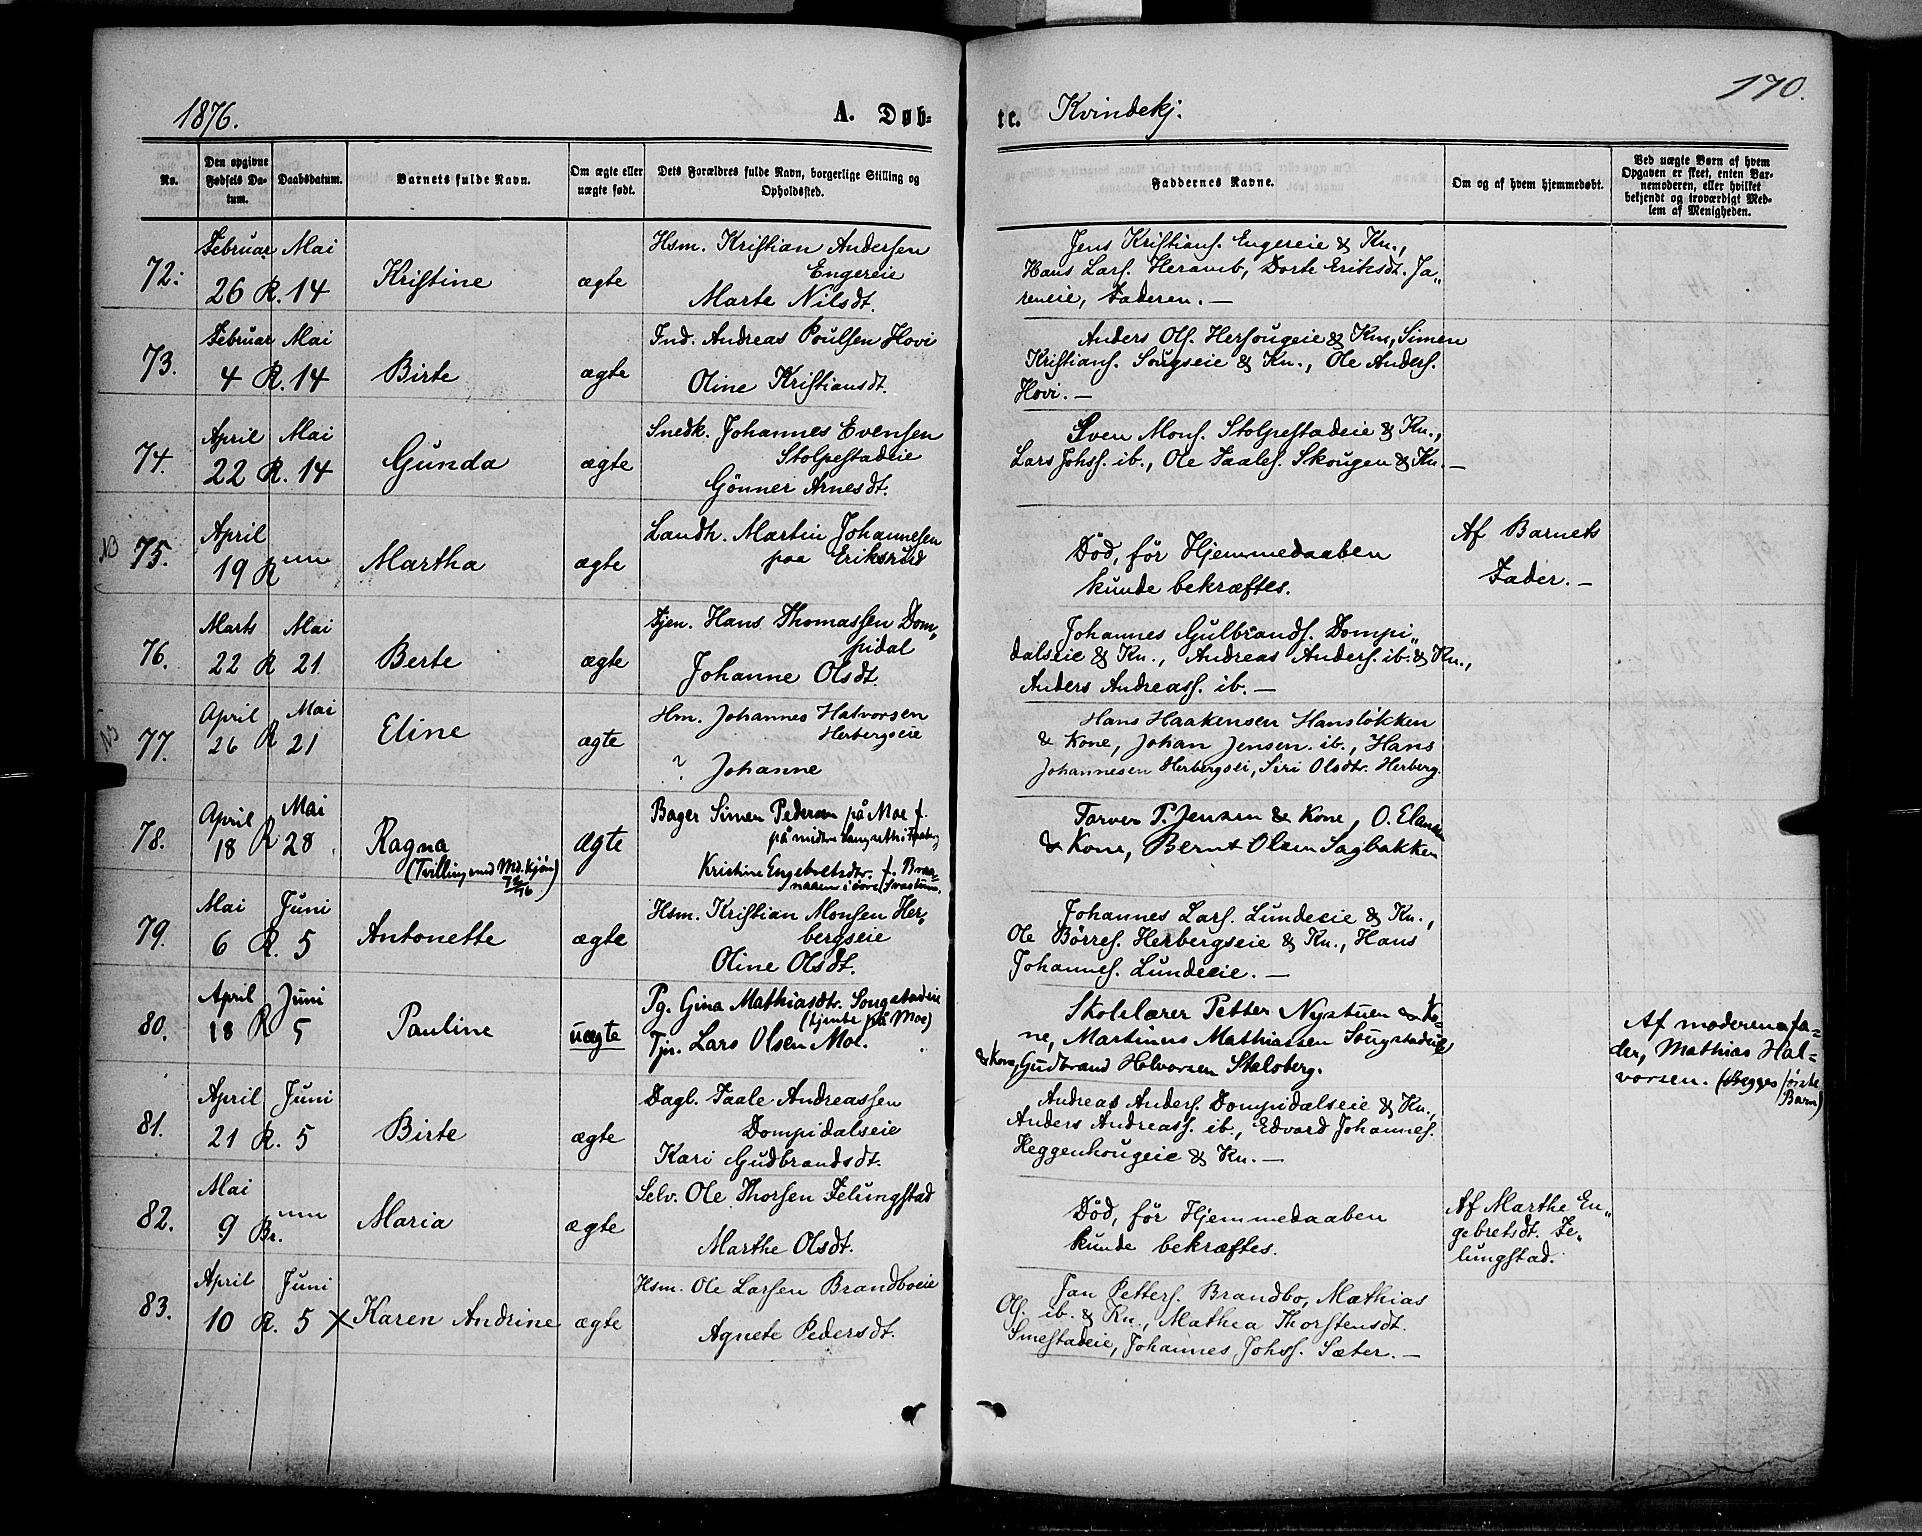 1876.
A. Døb-
te. Kvindekj.
170.
No.
Den opgivne Fødsels Da- tum.
Daabsdatum.
Barnets fulde Navn.
Om ægte eller uægte født.
Dets Forældres fulde Navn, borgerlige Stilling og Opholdssted.
Faddernes Navne.
Om og af hvem hjemmedøbt.
Ved uægte Børn af hvem Opgaven er skeet, enten Bar- nemoderen, eller hvilket bekjendt og troværdigt Med- lem af Menigheden.
72. Februar 26 R. Mai 14 Kristine ægte
Hsm. Kristian Andersen
Engereie
Marte Nilsdt.
Jens Kristians. Engereie & Kn.,
Hans Lars. Heramb, Dorte Eriksdt. Ja„
reneie, Faderen. —
73. Februar 4 R. Mai 14 Birte ægte
Ind. Andreas Poulsen Hovi
Oline Kristiansdt.
Anders Ols. Hersougeie & Kn., Simen
Kristians. Sougseie & Kn., Ole Anders.
Hovi. —
74. April 22 R. Mai 14 Gunda ægte
Snedk. Johannes Evensen
Stolpestadeie
Gønner Arnesdt.
Sven Mons. Stolpestadeie & Kn.,
Lars Johss. ib., Ole Paales. Skougen & Kn. —
NB 75. April 19 R Martha ægte
Landh. Martin Johannesen
paa Eriksrud
Død, før Hjemmedaaben
kunde bekræftes.
Af Barnets
Fader. —
76. Marts 22 R Mai 21 Berte ægte
Tjen. Hans Thomassen Dom„
pidal
Johanne Olsdt.
Johannes Gulbrands. Dompi„
dalseie & Kn., Andreas Anders. ib. & Kn.,
Anders Andreass. ib. —
77. April 26 R Mai 21 Eline ægte
Hm. Johannes Halvorsen
Herbergseie
? Johanne
Hans Haakensen Hansløkken
& Kone, Johan Jensen ib., Hans
Johannesen Herbergsei, Siri Olsdtr. Herberg.
78. April 18 R Mai 28 Ragna Ægte
(Tvilling med Md. kjøn
72/76)
Bager Simen Pedersen på Moe f.
på midtre Langseth i Faaberg
Kristine Engebretsdtr. f. Braa-
Farver P. Jensen & Kone, O. Elansen
& Kone, Bernt Olsen Sagbakken
79. Mai 6 R. Juni 5 Antonette ægte
Hsm. Kristian Monsen Her„
bergseie
Oline Olsdt.
Johannes Lars. Lundeeie & Kn.,
Ole Børres. Herbergseie & Kn., Hans
Johannes. Lundeeie. —
80. April 18 R Juni 5 Pauline uægte
Pg. Gina Mathiasdtr. Sougstadeie
(tjente på Moe)
Tjr. Lars Olsen Moe.
Skolelærer Petter Nystuen & Ko-
ne, Martinus Mathiassen Sougstadeie
& Kone, Gudbrand Halvorsen Stalsberg.
Af moderens fa-
der, Mathias Hal-
vorsen. (Begges første
Barn)
81. April 21 R. Juni 5 Birte ægte
Dagl. Paale Andreassen
Dompidalseie
Kari Gudbrandsdt.
Andreas Anders. Dompidalseie & Kn.,
Anders Andreass. ib., Edvard Johannes.
Heggenhougeie & Kn. —
82. Mai 9 Br. Maria ægte
Selv. Ole Thorsen Jelungstad
Marthe Olsdt.
Død, før Hjemmedaaben
kunde bekræftes.
Af Marthe En„
gebretsdt. Je„
lungstad.
83. April 10 R. Juni 5 X Karen Andrine ægte
Hsm. Ole Larsen Brandboeie
Agnete Pedersdt.
Jan Petters. Brandbo, Mathias
Ols. ib. & Kn., Mathea Thorstensdt.
Smestadeie, Johannes Johss. Sæter. —